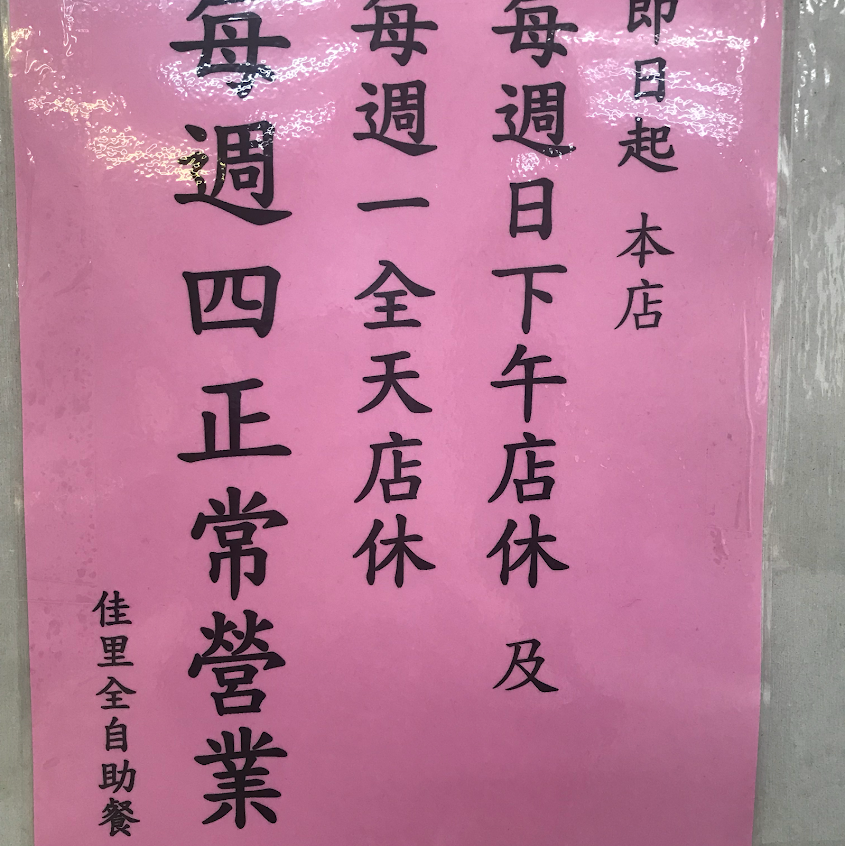 即日起 本店
每週日下午店休 及
每週一全天店休
每週四正常營業
佳里全自助餐